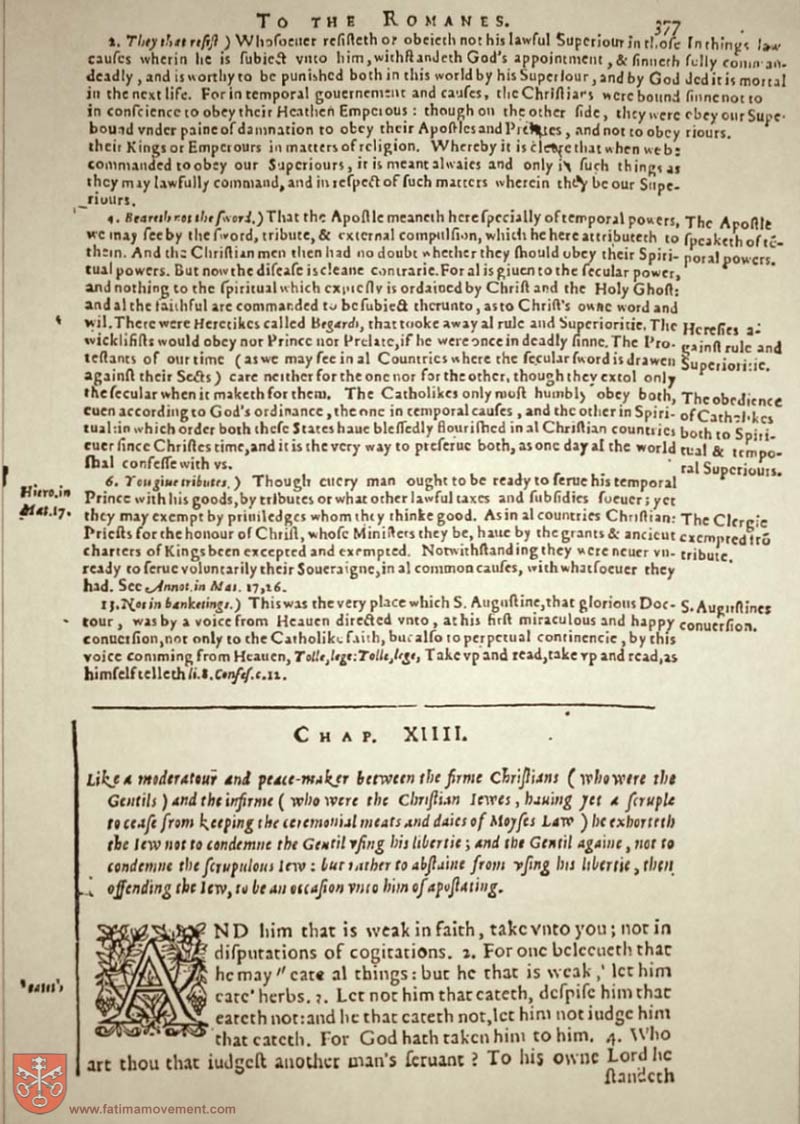 TO THE ROMANES.
377
2. They that reſiſt ) Whoſoeuer reſiſteth or obeieth not his lawful Superiour in thoſe
cauſes wherin he is ſubiect vnto him, withſtandeth God's appointment, & ſinneth
deadly, and is worthy to be punished both in this world by his Superiour, and by God
in the next life. For in temporal gouernement and cauſes, the Chriſtians were bound
in conſcience to obey their Heathen Emperous : though on the other ſide, they were
bound vnder paine of damnation to obey their Apoſtles and Prelates, and not to obey
their Kings or Emperours in matters of religion. Whereby it is cleare that when we be
commanded to obey our Superiours, it is meant alwaies and only in ſuch things as
they may lawfully command, and in reſpect of ſuch matters wherein they be our Supe-
riours.
In things law
fully comman-
ded it is mortal
ſinne not to
obey our Supe-
riours.
4. Beareth not the ſword.) That the Apoſtle meaneth here ſpecially of temporal powers,
we may ſee by the ſword, tribute, & external compulſion, which he here attributeth to
them. And the Chriſtian men then had no doubt whether they ſhould obey their Spiri-
tual powers. But now the diſeaſe is cleane contrarie. For al is giuen to the ſecular power,
and nothing to the ſpiritual which expreſly is ordained by Chriſt and the Holy Ghoſt:
and al the faithful are commanded to be ſubiect therunto, as to Chriſt's owne word and
wil. There were Heretikes called Begardi, that tooke away al rule and Superioritie. The
wickliſiſts would obey nor Prince nor Prelate, if he were once in deadly ſinne. The Pro-
teſtants of our time ( as we may ſee in al Countries where the ſecular ſword is drawen
againſt their Sects ) care neither for the one nor for the other, though they extol only
the ſecular when it maketh for them. The Catholikes only moſt humbly obey both,
euen according to God's ordinance, the one in temporal cauſes, and the other in Spiri-
tual: in which order both theſe States haue bleſſedly flouriſhed in al Chriſtian countries
euer ſince Chriſtes time, and it is the very way to preſerue both, as one day al the world
ſhal confeſſe with vs.
The Apoſtle
ſpeaketh of tē-
poral powers.
Hereſies a-
gainſt rule and
Superioritie.
The obedience
of Catholikes
both to Spiri-
tual & tempo-
ral Superiours.
6. You giue tributes. ) Though euery man ought to be ready to ſerue his temporal
Prince with his goods, by tributes or what other lawful taxes and ſubſidies ſoeuer; yet
they may exempt by priuiledges whom they thinke good. As in al countries Chriſtian:
Prieſts for the honour of Chriſt, whoſe Miniſters they be, haue by the grants & ancient
charters of Kings been excepted and exempted. Notwithſtanding they were neuer vn-
ready to ſerue voluntarily their Soueraigne, in al common cauſes, with whatſoeuer they
had. See Annot. in Mat. 17,26.
Hiero. in
Mat. 17.
The Clergie
exempted frō
tribute.
13. Not in banketings. ) This was the very place which S. Auguſtine, that glorious Doc-
tour, was by a voice from Heauen directed vnto, at his firſt miraculous and happy
conuerſion, not only to the Catholike faith, but alſo to perpetual continencie, by this
voice comming from Heauen, Tolle, lege: Tolle, lege, Take vp and read, take vp and read, as
himſelf telleth li. 8. Confeſ. c. 12.
S. Auguſtines
conuerſion.
CHAP. XIIII.
Like a moderatour and peace-maker between the firme Chriſtians ( who were the
Gentils ) and the infirme ( who were the Chriſtian Iewes, hauing yet a ſcruple
to ceaſe from keeping the ceremonial meats and daies of Moyſes Law ) he exhorteth
the Iew not to condemne the Gentil vſing his libertie ; and the Gentil againe, not to
condemne the ſcrupulous Iew : but rather to abſtaine from vſing his libertie, then
offending the Iew, to be an occaſion vnto him of apoſtating.
AND him that is weak in faith, take vnto you ; not in
diſputations of cogitations. 2. For one beleeueth that
he may " eate al things: but he that is weak, ' let him
eate' herbs. 3. Let not him that eateth, deſpiſe him that
eateth not: and he that eateth not, let him not iudge him
that eateth. For God hath taken him to him. 4. Who
art thou that iudgeſt another man's ſeruant ? To his owne Lord he
ſtandeth
www.fatimamovement.com